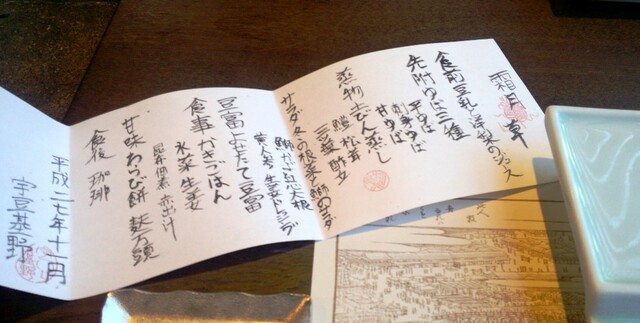 霜月 草
食前 豆乳と洋梨のジュース
先附 ゆば三種
平ゆば
刺身ゆば
甘ゆば
蒸物 土びん蒸し
鱧 松茸
三葉 酢立
サラダ 冬の根菜と鰤のサラダ
鰤 かぶ 紅芯大根
黄人参 生姜ドレッシング
豆冨 よせたて豆冨
食事 かきごはん
水菜 生姜
昆布佃煮 赤出汁
甘味 わらび餅 麩万頭
食後 珈琲
平成二七年十一月
宇豆基野